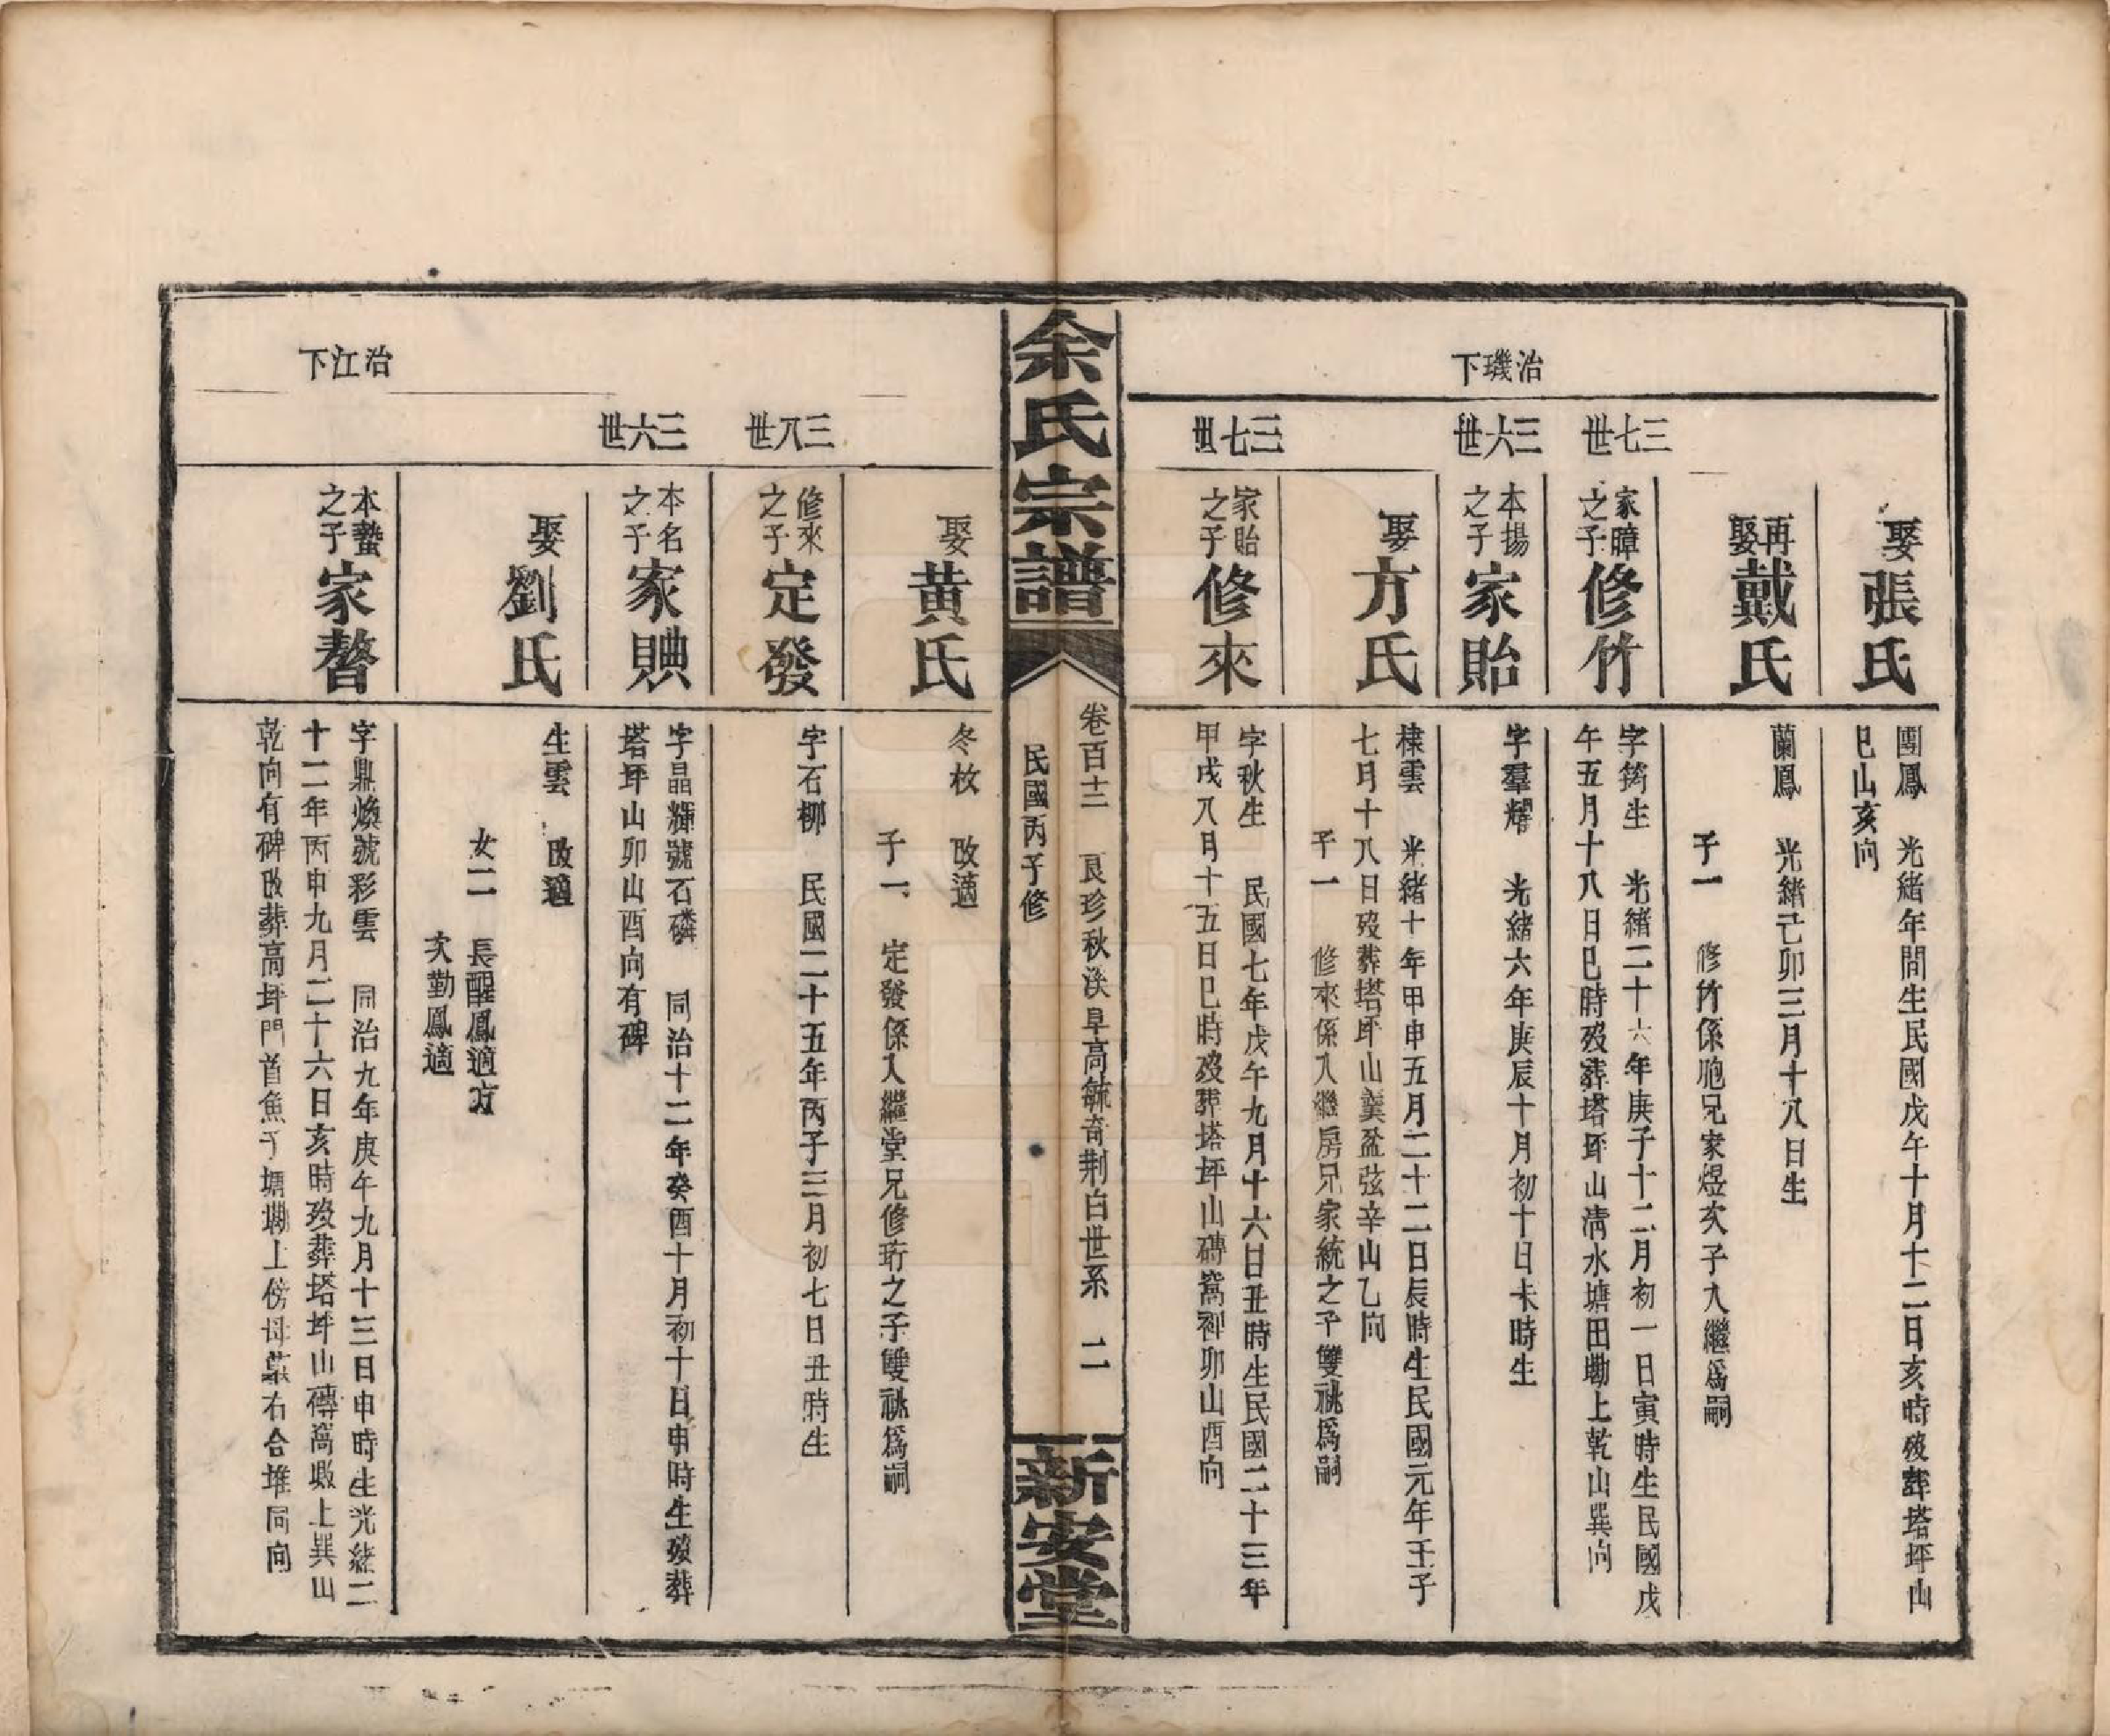 治璣下
娶張氏
團鳳　光緒年間生民國戊午十月十二日亥時歿葬塔坪山
巳山亥向
再娶戴氏
蘭鳳　光緒己卯三月十八日生
子一　修竹係胞兄家煜次子入繼爲嗣
三七世
家暲之子修竹
字筠生　光緒二十六年庚子十二月初一日寅時生民國戊
午五月十八日巳時歿葬塔坪山清水塘田墈上乾山巽向
三六世
本揚之子家貽
字羣耀　光緒六年庚辰十月初十日未時生
娶方氏
棣雲　光緒十年甲申五月二十二日辰時生民國元年壬子
七月十八日歿葬塔坪山糞盈弦辛山乙向
子一　修來係入繼房兄家統之子雙祧爲嗣
三七世
家貽之子修來
字秋生　民國七年戊午九月十六日丑時生民國二十三年
甲戌八月十五日巳時歿葬塔坪山磚窩裡卯山酉向
余氏宗譜
卷百十二　良珍秋渼阜高毓奇荆白世系　二
民國丙子修
新安堂
娶黄氏
冬枚　改適
子一　定發係入繼堂兄修珩之子雙祧爲嗣
三八世
修來之子定發
字石柳　民國二十五年丙子三月初七日丑時生
三六世
本名之子家賟
字晶輝號石磷　同治十二年癸酉十月初十日申時生歿葬
塔坪山卯山酉向有碑
娶劉氏
生雲　改適
女二　長醒鳳適方
次勤鳳適
治江下
本蟄之子家瞀
字鼎煥號彩雲　同治九年庚午九月十三日申時生光緒二
十二年丙申九月二十六日亥時歿葬塔坪山磚窩墈上巽山
乾向有碑改葬高坪門首魚子塘墈上傍母墓右合堆同向